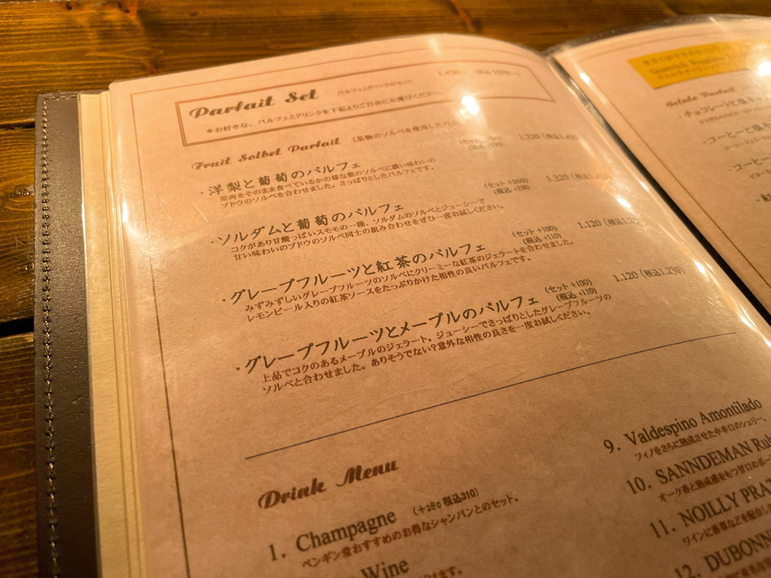 Parfait Set パルフェとドリンクのセット 1,420～
※お好きな、パルフェとドリンクを下記よりご自由にお選びください。
Fruit Solbet Parfait (果物のソルベを使用したパル
・洋梨と葡萄のパルフェ 1,320 (税込1,4
果肉をそのまま食べているかの様な梨のソルベに濃い味わいの
ブドウのソルベを合わせました。さっぱりとしたパルフェです。
・ソルダムと葡萄のパルフェ (セット+300) (税込 +330) 1,320
コクがあり甘酸っぱいスモモの一種、ソルダムのソルベとジューシーで
甘い味わいのブドウのソルベ同士の組み合わせをぜひ一度お試しください。
・グレープフルーツと紅茶のパルフェ (セット+100) (税込 +110) 1,120
みずみずしいグレープフルーツのソルベにクリーミーな紅茶のジェラートを合わせました。
レモンピール入りの紅茶ソースをたっぷりかけた相性の良いパルフェです。
・グレープフルーツとメープルのパルフェ (セット+100) (税込 +110) 1,120 (税込1,230)
上品でコクのあるメープルのジェラート。ジューシーでさっぱりとしたグレープフルーツの
ソルベと合わせました。ありそうでない?意外な相性の良さを一度お試しください。
Drink Menu
1. Champagne (+280 税込310)
ペンギン堂おすすめのお得なシャンパンとのセット。
Wine
けます。
9. Valdespino Amontilado
フィノをさらに熟成させた中辛口のシェリー。
10. SANNDEMAN Rub
オーク香と熟成感をもつ甘口のポー
11. NOILLY PRAT
ワインに香草などを配合し
12. DUBONN
Gelato Parfait
・チョコレートと
・コーヒーと
・コーヒー